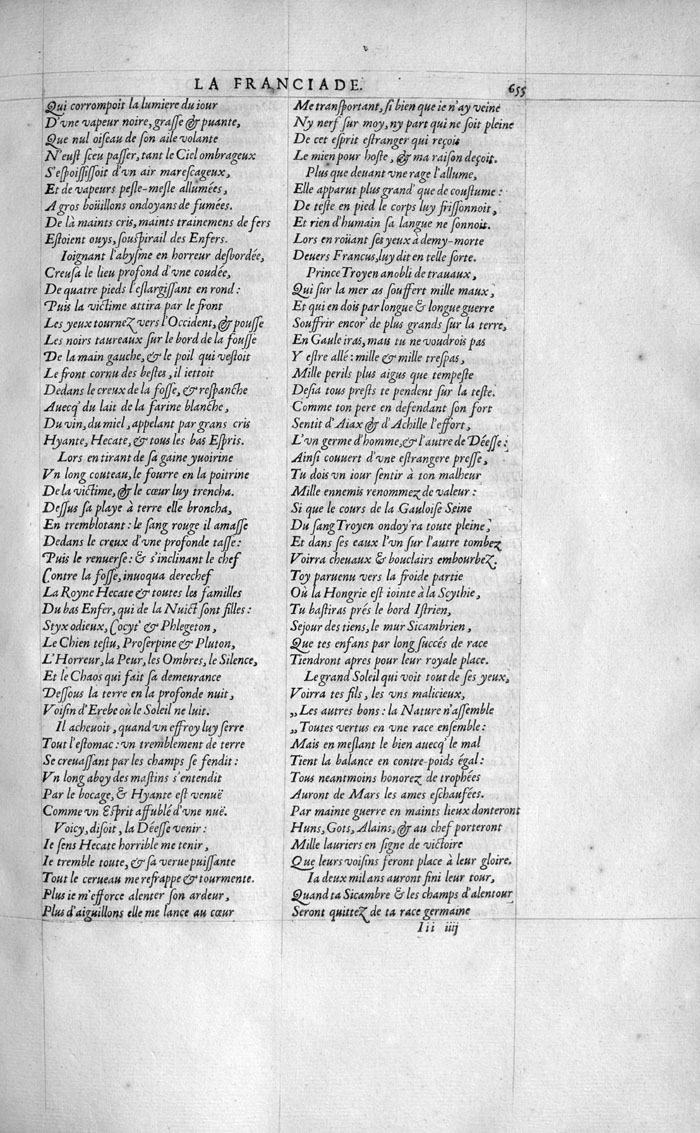 LA FRANCIADE. 655
Qui corrompoit la lumiere du iour
D'vne vapeur noire, grasse & puante,
Que nul oiseau de son aile volante
N'eust sceu passer, tant le Ciel ombrageux
S'espoississoit d'vn air marescageux,
Et de vapeurs pesle-mesle allumées,
A gros boüillons ondoyans de fumées.
De là maints cris, maints trainemens de fers
Estoient ouys, souspirail des Enfers.
Ioignant l'abysme en horreur desbordée,
Creusa le lieu profond d'vne coudée,
De quatre pieds l'eslargissant en rond:
Puis la victime attira par le front
Les yeux tournez vers l'Occident, & pousse
Les noirs taureaux sur le bord de la fousse
De la main gauche, & le poil qui vestoit
Le front cornu des bestes, il iettoit
Dedans le creux de la fosse, & respanche
Auecq' du lait de la farine blanche,
Du vin, du miel, appelant par grans cris
Hyante, Hecate, & tous les bas Espris.
Lors en tirant de sa gaine yuoirine
Vn long couteau, le fourre en la poitrine
De la victime, & le cœur luy trencha.
Dessus sa playe à terre elle broncha,
En tremblotant: le sang rouge il amasse
Dedans le creux d'vne profonde tasse:
Puis le renuerse: & s'inclinant le chef
Contre la fosse, inuoqua derechef
La Royne Hecate & toutes les familles
Du bas Enfer, qui de la Nuict sont filles:
Styx odieux, Cocyt' & Phlegeton,
Le Chien testu, Proserpine & Pluton,
L'Horreur, la Peur, les Ombres, le Silence,
Et le Chaos qui fait sa demeurance
Dessous la terre en la profonde nuit,
Voisin d'Erebe où le Soleil ne luit.
Il acheuoit, quand vn effroy luy serre
Tout l'estomac: vn tremblement de terre
Se creuassant par les champs se fendit:
Vn long aboy des mastins s'entendit
Par le bocage, & Hyante est venuë
Comme vn Esprit affublé d'vne nuë.
Voicy, disoit, la Déesse venir:
Ie sens Hecate horrible me tenir,
Ie tremble toute, & sa verue puissante
Tout le cerueau me refrappe & tourmente.
Plus ie m'efforce alenter son ardeur,
Plus d'aiguillons elle me lance au cœur
Me transportant, si bien que ie n'ay veine
Ny nerf sur moy, ny part qui ne soit pleine
De cet esprit estranger qui reçois
Le mien pour hoste, & ma raison deçoit.
Plus que deuant vne rage l'allume,
Elle apparut plus grand' que de coustume:
De teste en pied le corps luy frissonnoit,
Et rien d'humain sa langue ne sonnoit.
Lors en roüant ses yeux à demy-morte
Deuers Francus, luy dit en telle sorte.
Prince Troyen anobli de trauaux,
Qui sur la mer as souffert mille maux,
Et qui en dois par longue & longue guerre
Souffrir encor' de plus grands sur la terre,
En Gaule iras, mais tu ne voudrois pas
Y estre allé: mille & mille trespas,
Mille perils plus aigus que tempeste
Desia tous prests te pendent sur la teste.
Comme ton pere en defendant son fort
Sentit d'Aiax & d'Achille l'effort,
L'vn germe d'homme, & l'autre de Déesse:
Ainsi couuert d'vne estrangere presse,
Tu dois vn iour sentir à ton malheur
Mille ennemis renommez de valeur:
Si que le cours de la Gauloise Seine
Du sang Troyen ondoy'ra toute pleine,
Et dans ses eaux l'vn sur l'autre tombez
Voirra cheuaux & bouclairs embourbez.
Toy paruenu vers la froide partie
Où la Hongrie est iointe à la Scythie,
Tu bastiras prés le bord Istrien,
Sejour des tiens, le mur Sicambrien,
Que tes enfans par long succés de race
Tiendront apres pour leur royale place.
Le grand Soleil qui voit tout de ses yeux,
Voirra tes fils, les vns malicieux,
„Les autres bons: la Nature n'assemble
„Toutes vertus en vne race ensemble:
Mais en meslant le bien auecq' le mal
Tient la balance en contre-poids égal:
Tous neantmoins honorez de trophées
Auront de Mars les ames eschaufées.
Par mainte guerre en maints lieux donteront
Huns, Gots, Alains, & au chef porteront
Mille lauriers en signe de victoire
Que leurs voisins feront place à leur gloire.
Ia deux mil ans auront fini leur tour,
Quand ta Sicambre & les champs d'alentour
Seront quittez de ta race germaine
Iii iiij